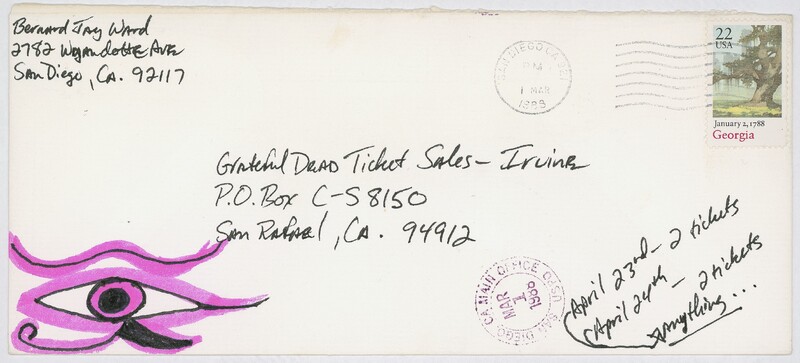 Bernard Jay Ward
2782 Wyandotte Ave
San Diego, CA. 92117
SAN DIEGO CA 921
PM
1 MAR
1988
22
USA
January 2, 1788
Georgia
Grateful Dead Ticket Sales - Irvine
P.O. Box C-S 8150
San Rafael, CA. 94912
SAN DIEGO, CA MAIN OFFICE
MAR
1
1988
April 23rd - 2 tickets
April 24th - 2 tickets
Anything...